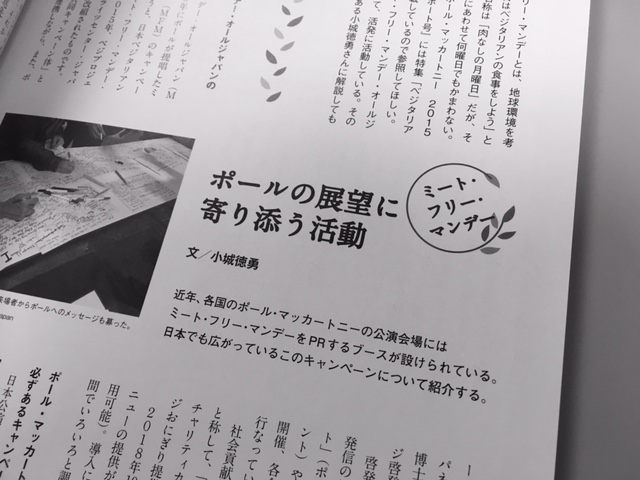 リー・マンデーとは、地球環境を考
はベジタリアンの食事をしよう」と
名称は「肉なしの月曜日」だが、そ
にあわせて何曜日でもかまわない。
ポール・マッカートニー 2015
ポート号」には特集「ベジタリア
しているので参照してほしい。
・フリー・マンデー・オールジ
て、活発に活動している。その
ある小城徳勇さんに解説しても
デー・オールジャパンの
ー・オールジャパン(M
ールが提唱したミ
(MFM)のキャ
015年、ベジタリアン
ミート・フリー・
マンデー
ポールの展望に
寄り添う活動
文/小城徳勇
近年、各国のポール・マッカートニーの公演会場には
ミート・フリー・マンデーをPRするブースが設けられている。
日本でも広がっているこのキャンペーンについて紹介する。
来場者からポールへのメッセージも募った。
apan
パネ
博士
ジ啓発
啓発
発信の
ト」(ポ
ント)や
開催、各
行なってい
社会貢献
と称して、「
チャリティカ
ジおにぎり提
2018年10
ニューの提供が
用可能)。導入に
間でいろいろと調
ポール・マッカート
必ずあるキャンペー
日本公演